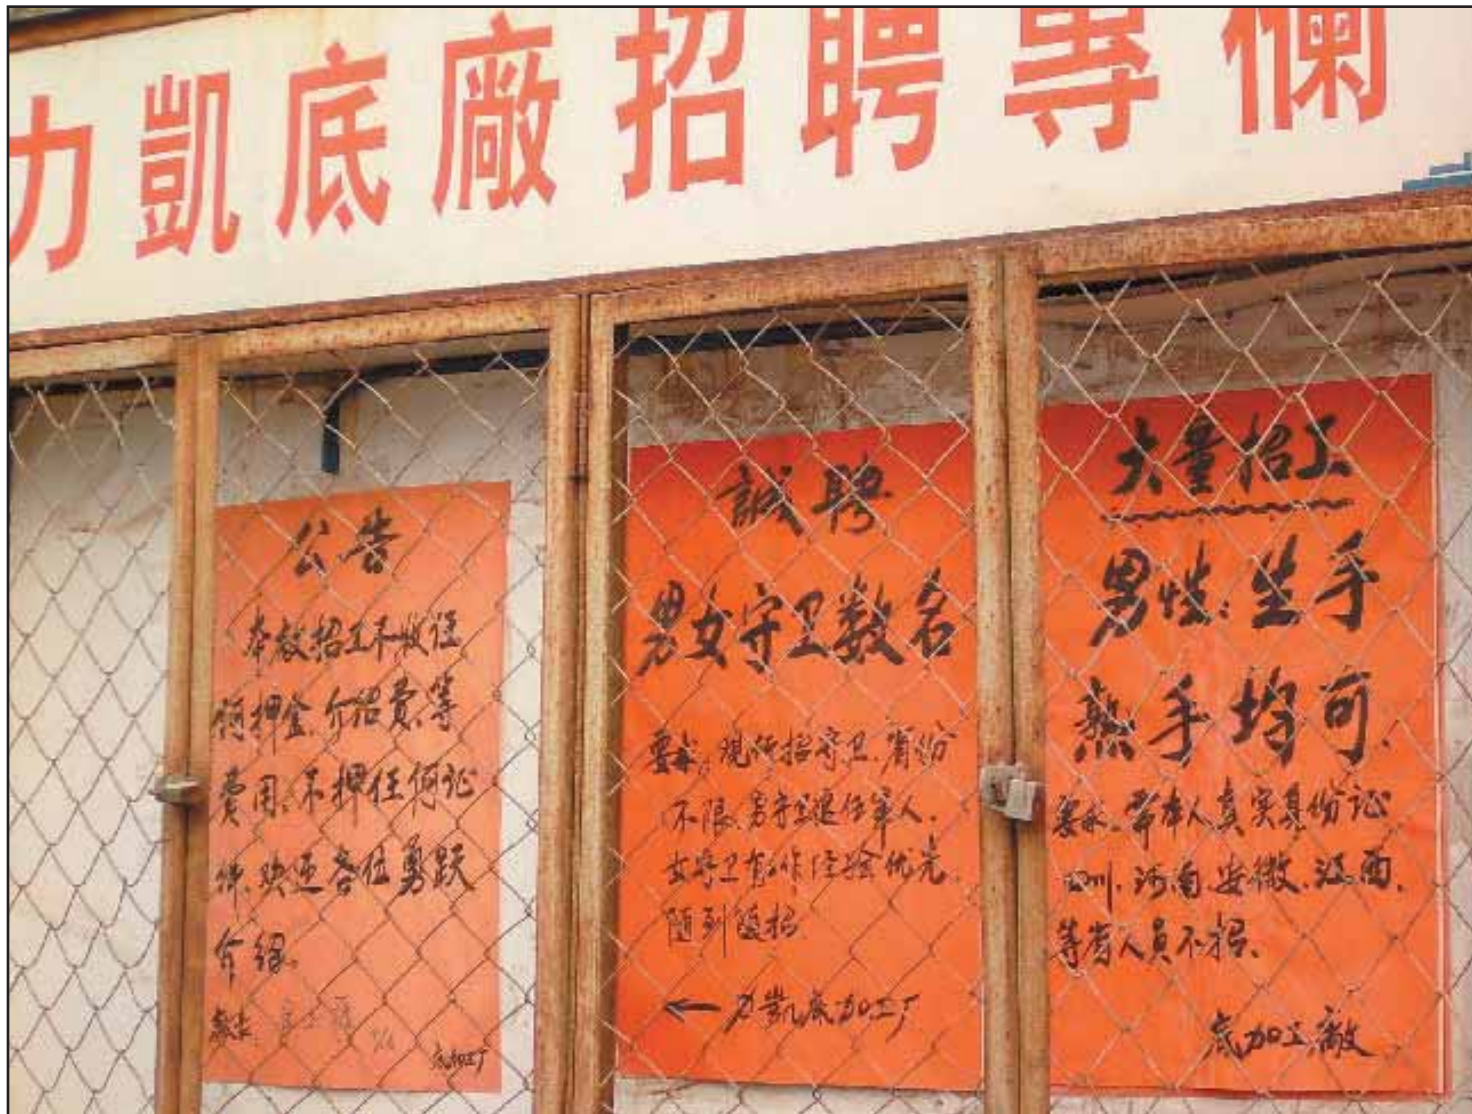 力凱底廠招聘專欄
公告
本廠招工不收任
何押金、介绍費、等
費用、不押任何证
件、欢迎各位勇跃
介绍。
底加工厂
誠聘
男女守卫数名
要求。现所招守卫、省份
不限、男守卫退伍军人、
女守卫有工作经验优先、
随到随招
← 力凱底加工厂
大量招工
男性:生手
熟手均可、
要求、带本人真实身份证
四川、河南、安徽、江西、
等省人员不招、
底加工廠